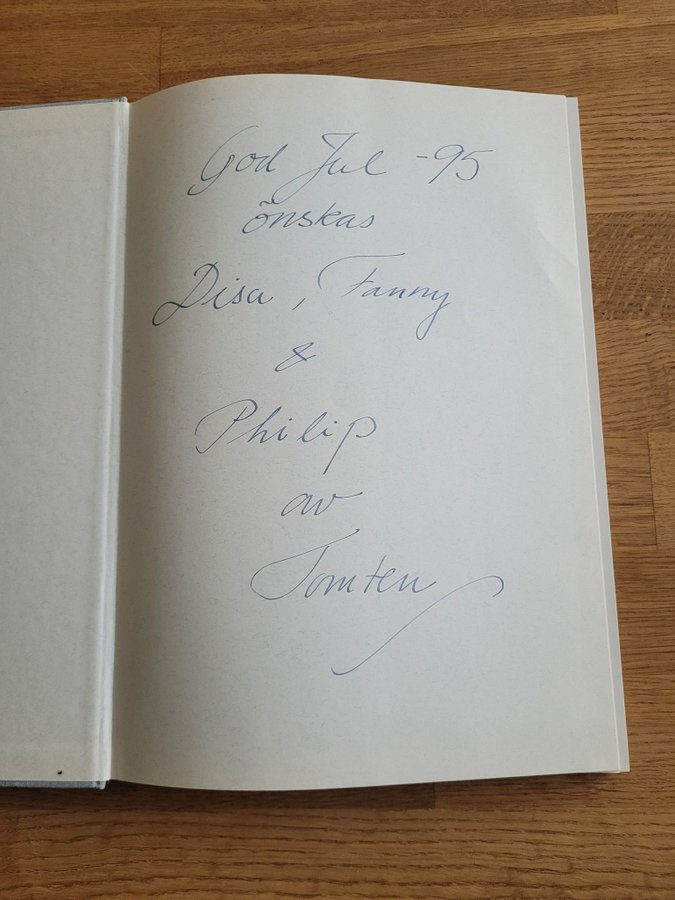 God Jul -95
önskas
Disa, Fanny
&
Philip
av
Tomten